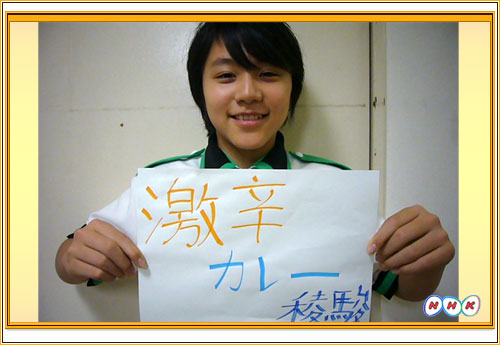 激辛
カレー
稜駿
NHK